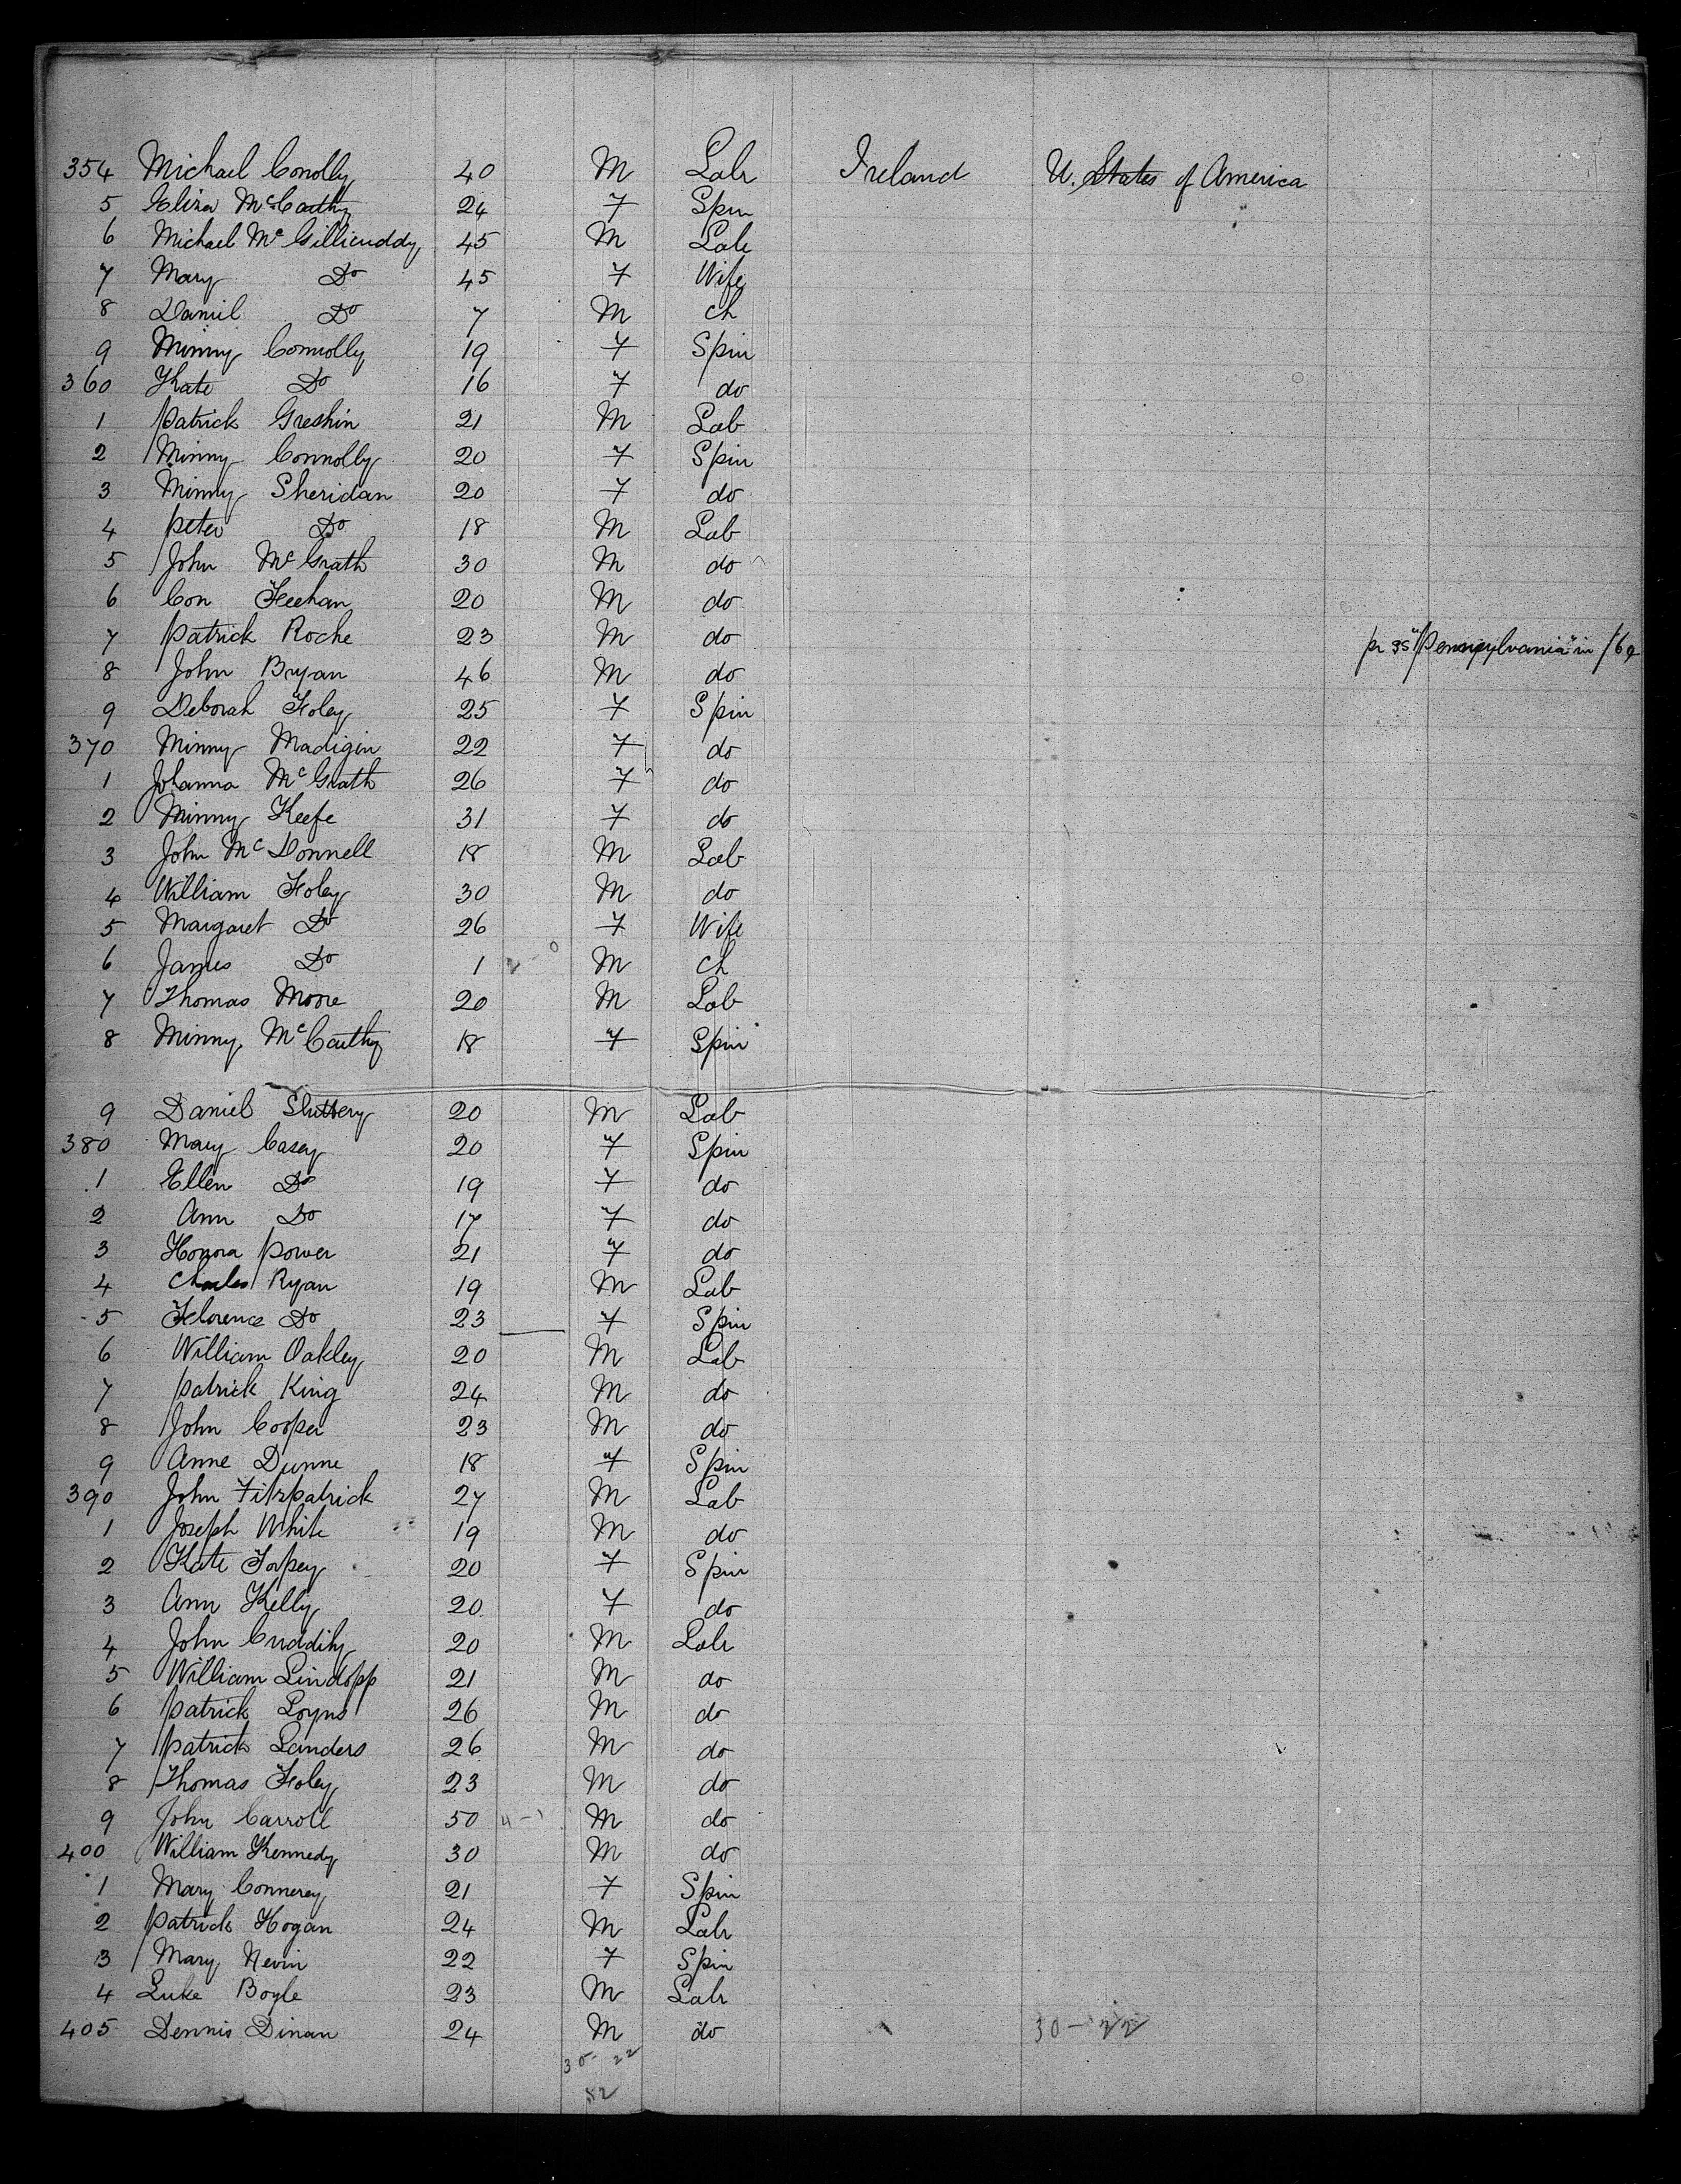 354 Michael Conolly 40 M Labr Ireland U. States of America
5 Eliza McCarthy 24 F Spin
6 Michael McGillicuddy 45 M Lab
7 Mary Do 45 F Wife
8 Daniel Do 7 M Ch
9 Minny Connolly 19 F Spin
360 Kate Do 16 F do
1 Patrick Greshin 21 M Lab
2 Minny Connolly 20 F Spin
3 Minny Sheridan 20 F do
4 Peter Do 18 M Lab
5 John McGrath 30 M do
6 Con Feehan 20 M do
7 Patrick Roche 23 M do pr SS "Pennsylvania" in /69
8 John Bryan 46 M do
9 Deborah Foley 25 F Spin
370 Minny Madigin 22 F do
1 Johanna McGrath 26 F do
2 Minny Keefe 31 F do
3 John McDonnell 18 M Lab
4 William Foley 30 M do
5 Margaret Do 26 F Wife
6 James Do 1 M Ch
7 Thomas Moore 20 M Lab
8 Minny McCarthy 18 F Spin
9 Daniel Sluttery 20 M Lab
380 Mary Casey 20 F Spin
1 Ellen Do 19 F do
2 Ann Do 17 F do
3 Honora Power 21 F do
4 Charles Ryan 19 M Lab
5 Florence Do 23 F Spin
6 William Oakley 20 M Lab
7 Patrick King 24 M do
8 John Cooper 23 M do
9 Anne Dunne 18 F Spin
390 John Fitzpatrick 27 M Lab
1 Joseph White 19 M do
2 Kate Torpey 20 F Spin
3 Ann Kelly 20 F do
4 John Cuddihy 20 M Labr
5 William Lindopp 21 M do
6 Patrick Lyons 26 M do
7 Patrick Landers 26 M do
8 Thomas Foley 23 M do
9 John Carroll 50 M do
400 William Kennedy 30 M do
1 Mary Connerey 21 F Spin
2 Patrick Hogan 24 M Labr
3 Mary Nevin 22 F Spin
4 Luke Boyle 23 M Labr
405 Dennis Dinan 24 M do 30 - 22
30 - 22
52